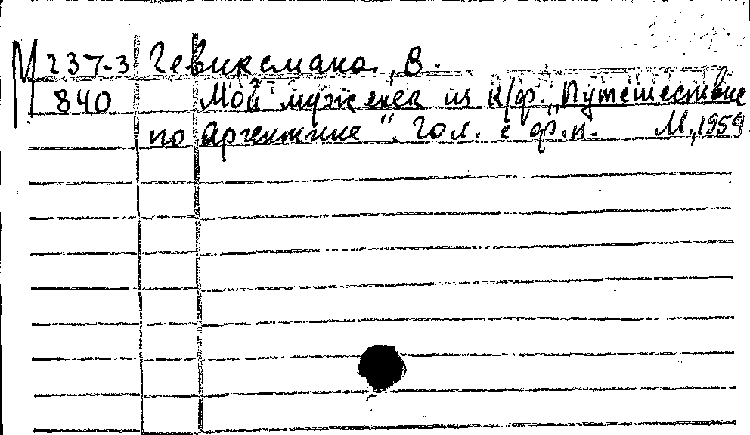 М 237-3 Гевиксмана, В.
840 Мой муженек из к/ф. „Путешествие
по Аргентине“. Гол. с ф.п. М., 1959.